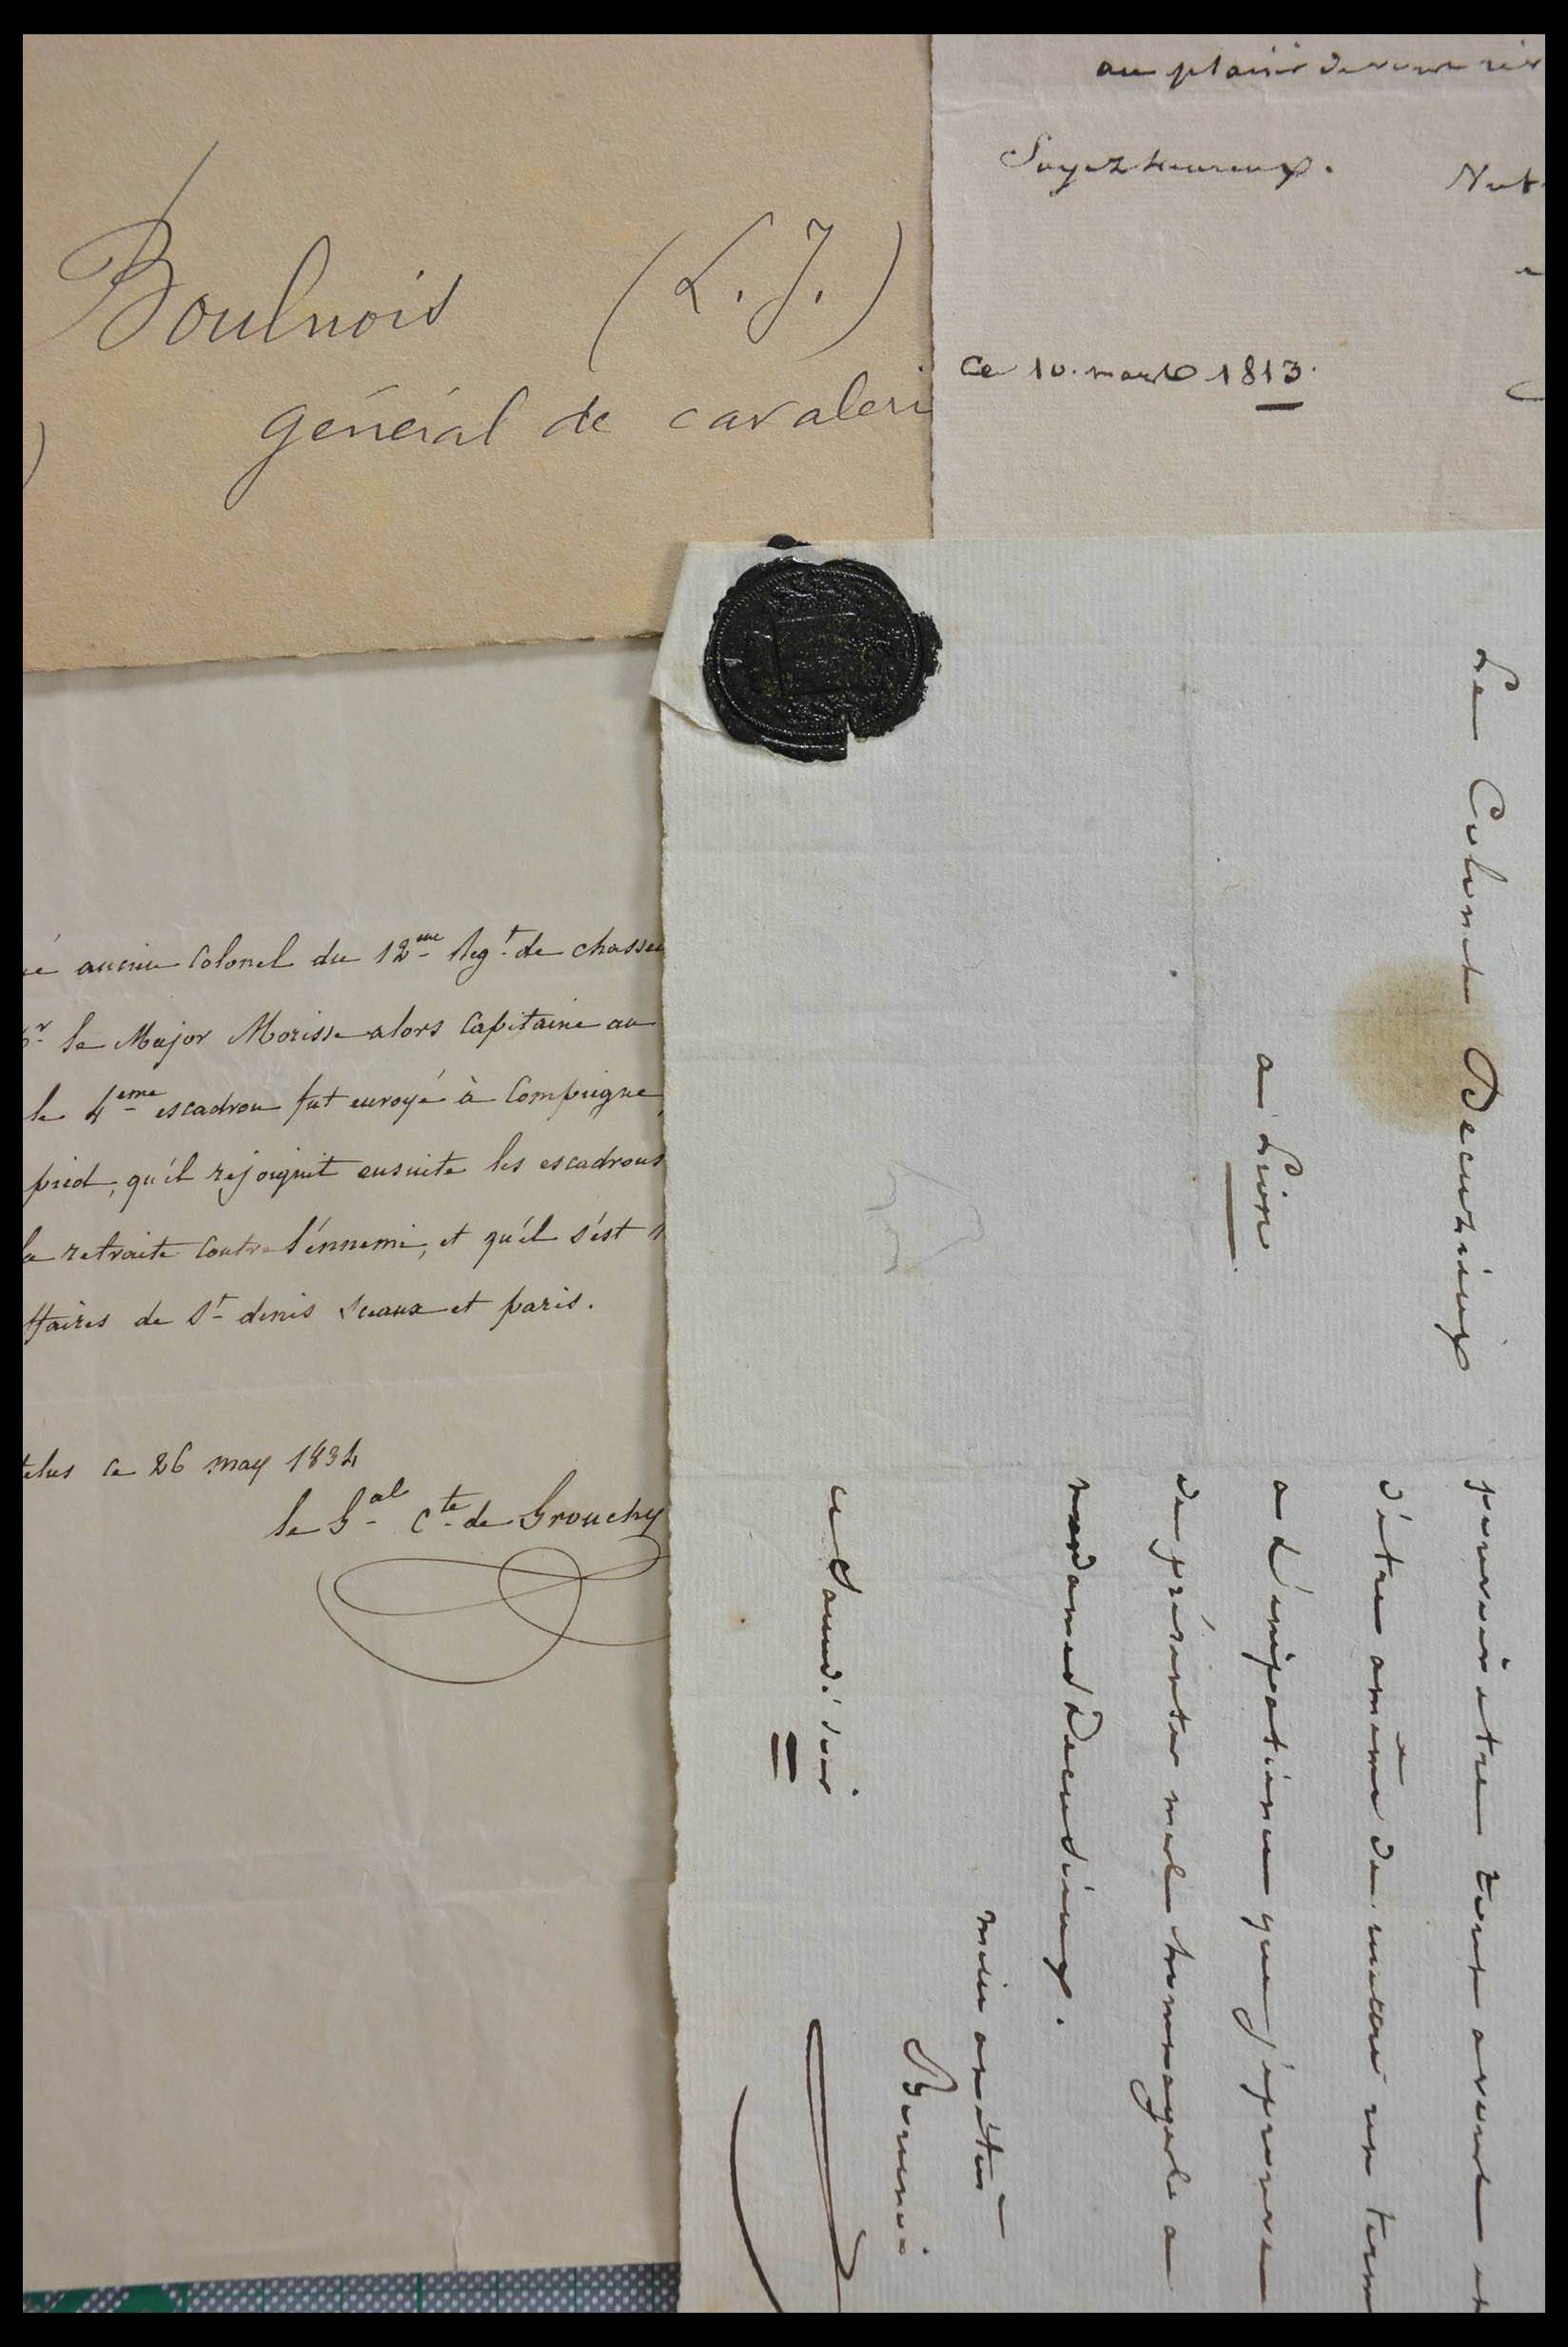 Boulnois (L. J.)
général de cavaleri
au plaisir de
Soyez heureux.
ce 10. mars 1813.
colonel du 12me Regt. de chasse
le Major Morisse alors Capitaine au
le 4eme escadron fut envoyé à Compiegne
pied, qu'il rejoignit ensuite les escadrons
la retraite contre l'énnemi, et qu'il s'est
ffaires de St denis Sceaux et paris.
telus ce 26 may 1834
le Gal Cte de Grouchy
Le Colonel Decuzieux
a Lion
être tout
d'être
a L'impatience que j'éprouve
de présenter mes hommages a
madame Decuzieux.
mille amitiés
ce Samedi soir